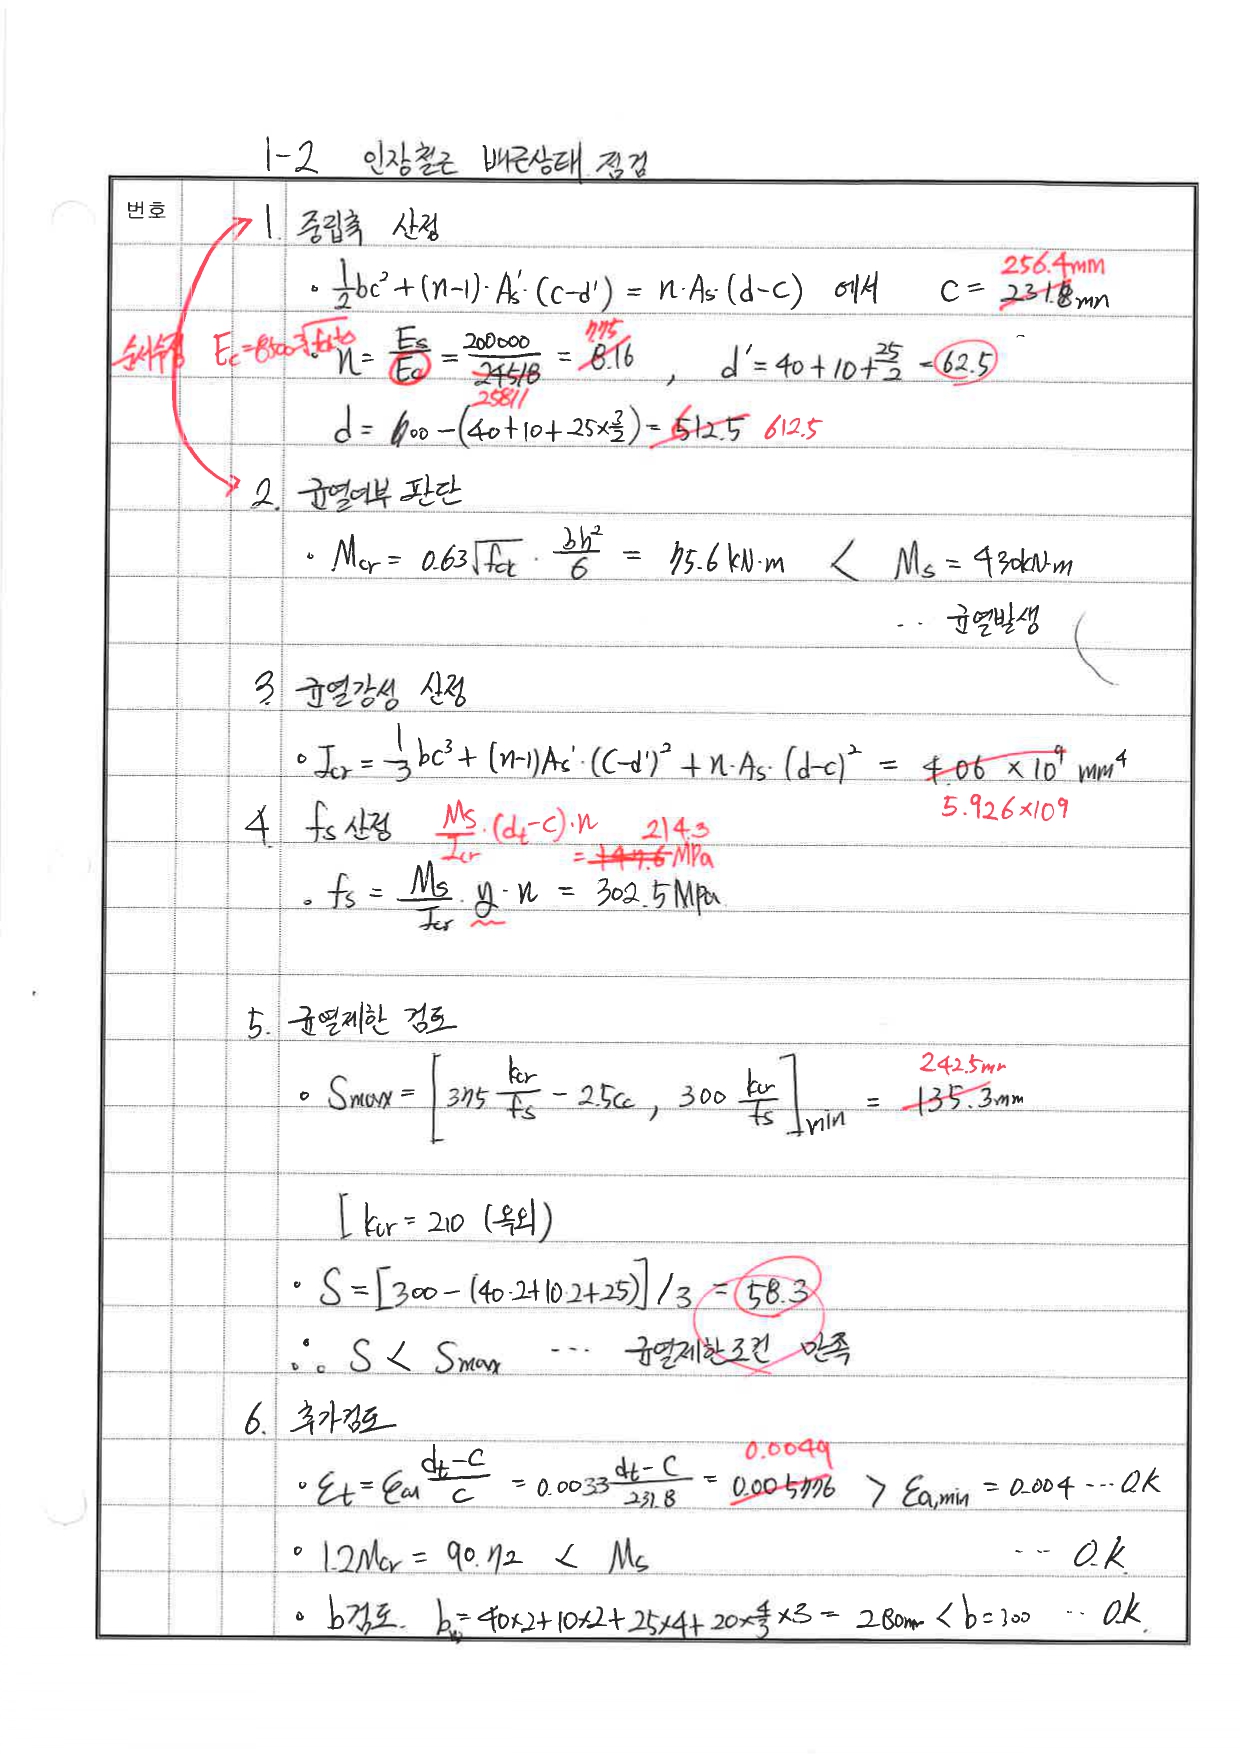 1-2 인장철근 배근상태 점검
번호
1. 중립축 산정
256.4mm
· ½bc² + (n-1)·As'·(c-d') = n·As·(d-c) 에서 c = 231.8mm
순서수정 Ec=8500∛fcu
775
· n = Es/Ec = 200000/24518 = 8.16 , d' = 40+10+25/2 = 62.5
25811
d = 600-(40+10+25×3/2) = 512.5 612.5
2. 균열여부 판단
· Mcr = 0.63√fck · bh²/6 = 75.6 kN·m < Ms = 430kN·m
·· 균열발생
3. 균열강성 산정
· Icr = 1/3 bc³ + (n-1)As'·(c-d')² + n·As·(d-c)² = 4.06 × 10⁹ mm⁴
5.926×109
4. fs 산정 Ms/Icr·(dt-c)·n = 147.6 214.3 MPa
· fs = Ms/Icr · y · n = 302.5 MPa
5. 균열제한 검토
242.5mm
· Smax = [375 kcr/fs - 2.5Cc , 300 kcr/fs]min = 135.3mm
[ kcr = 210 (옥외)
· S = [300-(40·2+10·2+25)]/3 = 58.3
∴ S < Smax ··· 균열제한조건 만족
6. 추가검토
0.0049
· εt = εcu dt-c/c = 0.0033 dt-c/231.8 = 0.005776 > εa,min = 0.004 ··· O.K
· 1.2Mcr = 90.72 < Ms ·· O.K
· b검토. bw = 40×2+10×2+25×4+20×4/3×3 = 280mm < b=300 ·· O.K